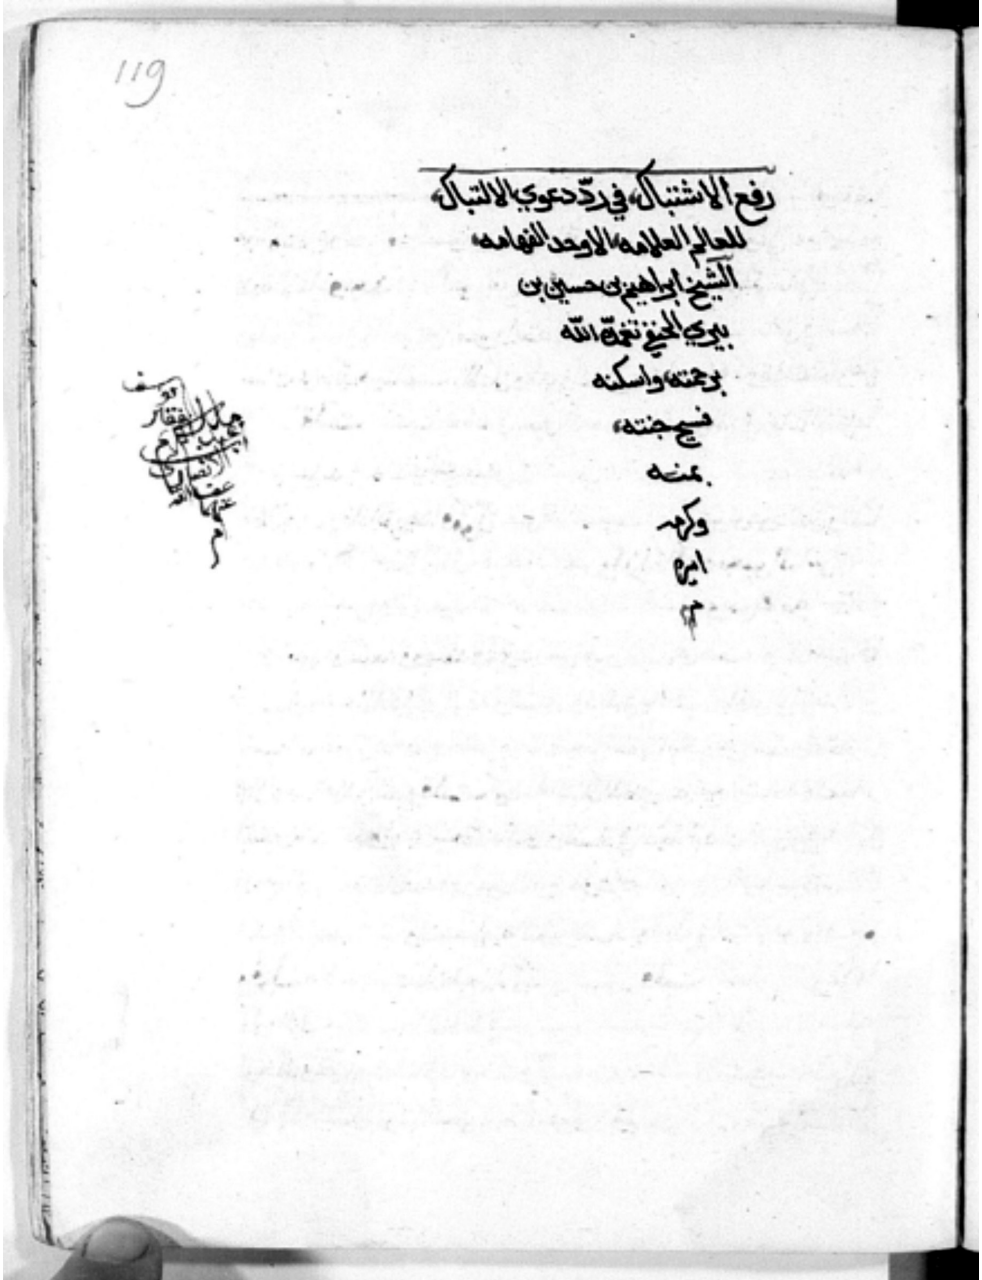 119
رفع الاشتباك، في ردّ دعوي الالتباك،
للعالم العلامه، الاوحد الفهامه،
الشيخ ابراهيم بن حسين بن
بيري الحنفي تغمّده الله
برحمته، واسكنه
فسيح جنته،
بمنه
وكرمه
امين
م
يوسف
الانصاري
عفا الله
عنهما
م